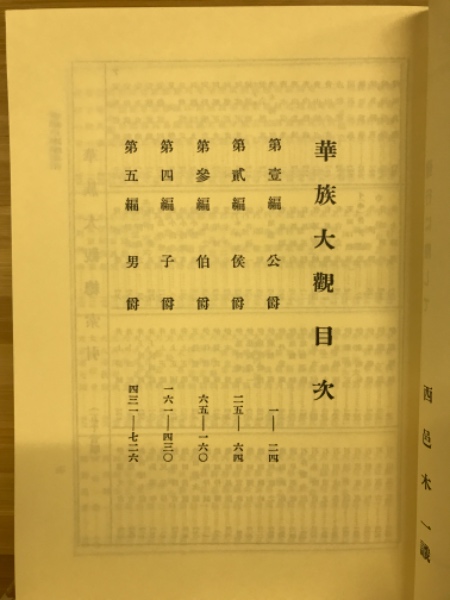 華族大觀目次
第壹編 公爵 一—二四
第貳編 侯爵 二五—六四
第參編 伯爵 六五—一六〇
第四編 子爵 一六一—四三〇
第五編 男爵 四三一—七二六
酉邑木一識